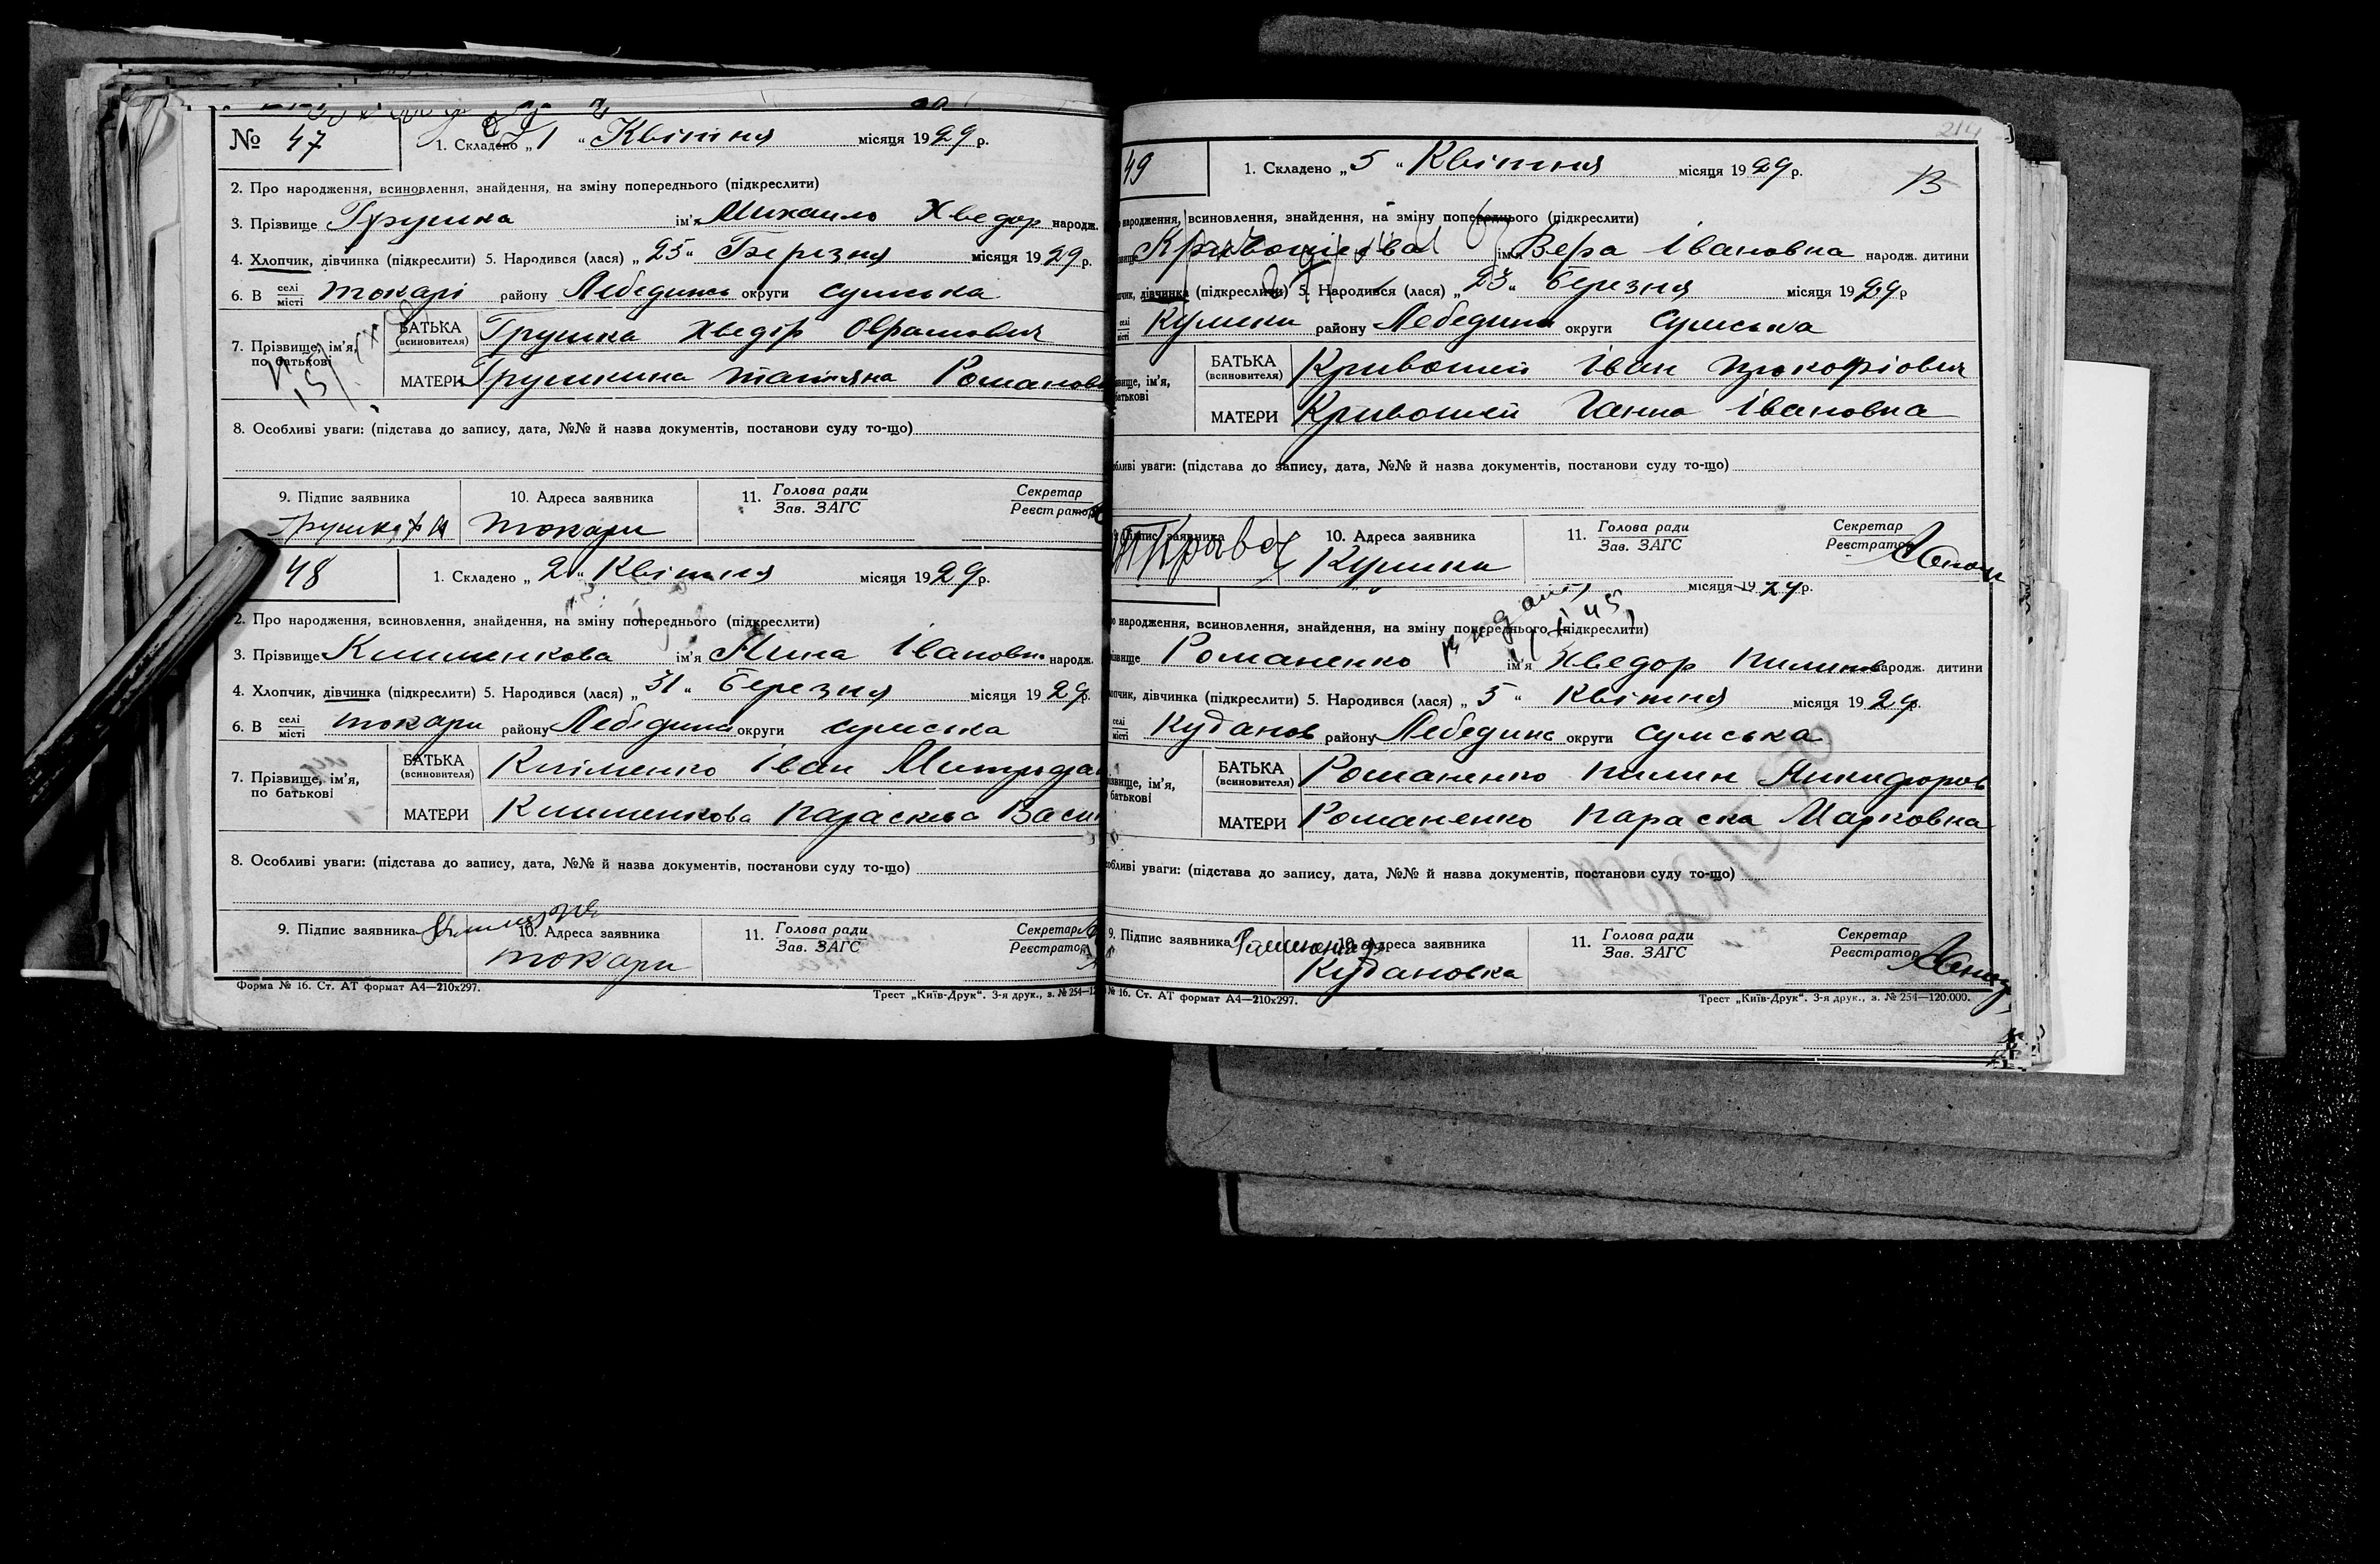 № 47
1. Складено „1“ Квітня місяця 1929 р.
2. Про народження, всиновлення, знайдення, на зміну попереднього (підкреслити)
3. Прізвище Грушка ім'я Михаило Хведор народж.
4. Хлопчик, дівчинка (підкреслити) 5. Народився (лася) „25“ Березня місяця 1929 р.
6. В селі місті Токарі району Лебединсь округи Сумська
7. Прізвище, ім'я, по батькові
БАТЬКА (всиновителя) Грушка Хведір
МАТЕРИ Грушкина Татяна Романов
8. Особливі уваги: (підстава до запису, дата, №№ й назва документів, постанови суду то-що)
9. Підпис заявника 10. Адреса заявника 11. Голова ради Зав. ЗАГС Секретар Реєстратор
Грушка Токари
48
1. Складено „2“ Квітня місяця 1929 р.
2. Про народження, всиновлення, знайдення, на зміну попереднього (підкреслити)
3. Прізвище Клименкова ім'я Нина Івановн народж.
4. Хлопчик, дівчинка (підкреслити) 5. Народився (лася) „31“ Березня місяця 1929 р.
6. В селі місті Токари району Лебединс округи Сумська
7. Прізвище, ім'я, по батькові
БАТЬКА (всиновителя) Кліменко Іван Митрофан
МАТЕРИ Клименкова Параскева Васи
8. Особливі уваги: (підстава до запису, дата, №№ й назва документів, постанови суду то-що)
9. Підпис заявника 10. Адреса заявника 11. Голова ради Зав. ЗАГС Секретар Реєстратор
Токари
Форма № 16. Ст. АТ формат А4—210х297. Трест „Київ-Друк“. 3-я друк., з. № 254—12
214
49
1. Складено „5“ Квітня місяця 1929 р.
В
народження, всиновлення, знайдення, на зміну попереднього (підкреслити)
Кривошієва ім'я Вера Івановна народж. дитини
дівчинка (підкреслити) 5. Народився (лася) „23“ Березня місяця 1929 р
селі місті Кушки району Лебединс округи Сумська
БАТЬКА (всиновителя) Кривошей Іван Прокофіович
МАТЕРИ Кривошей Ганна Івановна
уваги: (підстава до запису, дата, №№ й назва документів, постанови суду то-що)
Підпис заявника 10. Адреса заявника 11. Голова ради Зав. ЗАГС Секретар Реєстратор
Кушки
місяця 1929 р.
народження, всиновлення, знайдення, на зміну попереднього (підкреслити)
Романенко ім'я Хведор Пилипов народж. дитини
дівчинка (підкреслити) 5. Народився (лася) „5“ Квітня місяця 1929 р.
селі місті Куданов району Лебединс округи Сумська
БАТЬКА (всиновителя) Романенко Пилип Никифоров
МАТЕРИ Романенко Параска Марковна
уваги: (підстава до запису, дата, №№ й назва документів, постанови суду то-що)
9. Підпис заявника 10. Адреса заявника 11. Голова ради Зав. ЗАГС Секретар Реєстратор
Кудановка
№ 16. Ст. АТ формат А4—210х297. Трест „Київ-Друк“. 3-я друк., з. № 254—120.000.